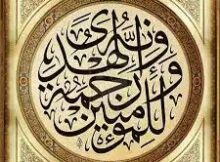 وَإِنَّهُ لَهُدًى وَرَحْمَةٌ لِلْمُؤْمِنِينَ